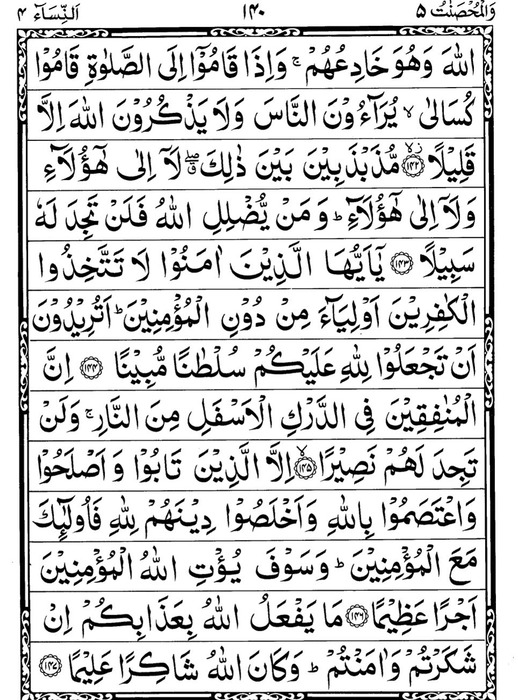 وَالْمُحْصَنٰتُ ۵ ۱۴۰ اَلنِّسَآء ۴
اللّٰهَ وَهُوَ خَادِعُهُمْ ۚ وَاِذَا قَامُوْۤا اِلَى الصَّلٰوةِ قَامُوْا
كُسَالٰى ۙ يُرَآءُوْنَ النَّاسَ وَلَا يَذْكُرُوْنَ اللّٰهَ اِلَّا
قَلِيْلًا ﴿۱۴۲﴾ مُّذَبْذَبِيْنَ بَيْنَ ذٰلِكَ ۖ لَاۤ اِلٰى هٰۤؤُلَآءِ
وَلَاۤ اِلٰى هٰۤؤُلَآءِ ؕ وَمَنْ يُّضْلِلِ اللّٰهُ فَلَنْ تَجِدَ لَهٗ
سَبِيْلًا ﴿۱۴۳﴾ يٰۤاَيُّهَا الَّذِيْنَ اٰمَنُوْا لَا تَتَّخِذُوا
الْكٰفِرِيْنَ اَوْلِيَآءَ مِنْ دُوْنِ الْمُؤْمِنِيْنَ ؕ اَتُرِيْدُوْنَ
اَنْ تَجْعَلُوْا لِلّٰهِ عَلَيْكُمْ سُلْطٰنًا مُّبِيْنًا ﴿۱۴۴﴾ اِنَّ
الْمُنٰفِقِيْنَ فِى الدَّرْكِ الْاَسْفَلِ مِنَ النَّارِ ۚ وَلَنْ
تَجِدَ لَهُمْ نَصِيْرًا ﴿۱۴۵﴾ۙ اِلَّا الَّذِيْنَ تَابُوْا وَاَصْلَحُوْا
وَاعْتَصَمُوْا بِاللّٰهِ وَاَخْلَصُوْا دِيْنَهُمْ لِلّٰهِ فَاُولٰٓئِكَ
مَعَ الْمُؤْمِنِيْنَ ؕ وَسَوْفَ يُؤْتِ اللّٰهُ الْمُؤْمِنِيْنَ
اَجْرًا عَظِيْمًا ﴿۱۴۶﴾ مَا يَفْعَلُ اللّٰهُ بِعَذَابِكُمْ اِنْ
شَكَرْتُمْ وَاٰمَنْتُمْ ؕ وَكَانَ اللّٰهُ شَاكِرًا عَلِيْمًا ﴿۱۴۷﴾